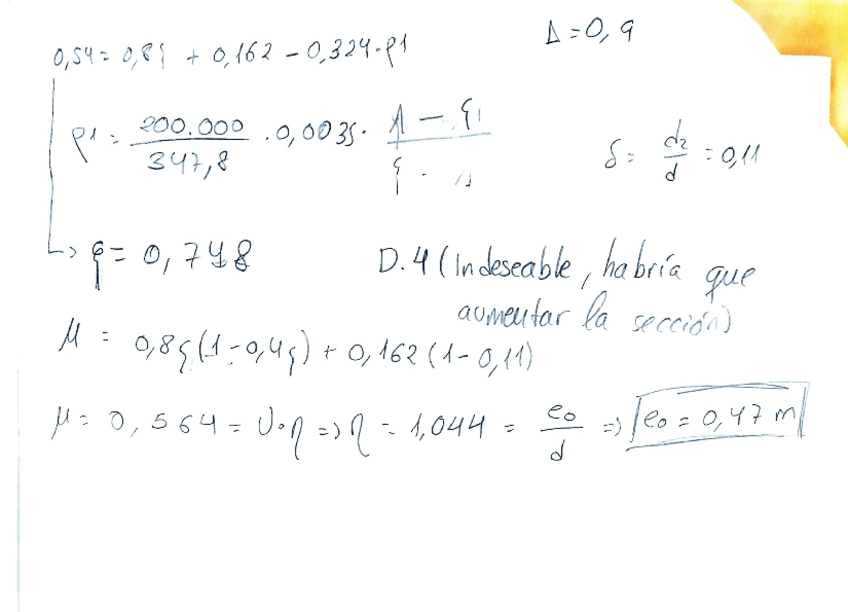 0,54 = 0,8ξ + 0,162 - 0,324·ρ1
Δ = 0,9
ρ1 = 200.000 / 347,8 · 0,0035 · 1 - ξ / ξ ·
δ = d2 / d = 0,11
↳ ξ = 0,748
D.4 (Indeseable, habría que
aumentar la sección)
μ = 0,8ξ(1-0,4ξ) + 0,162(1-0,11)
μ = 0,564 = υ·η => η = 1,044 = e0 / d => e0 = 0,47 m